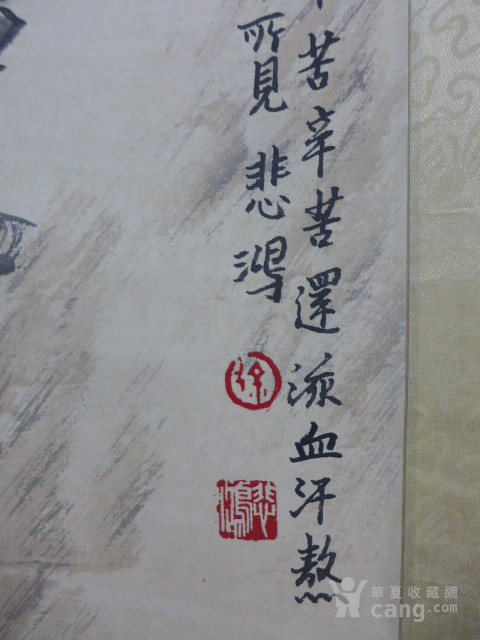 苦辛苦還血汗熬
所見悲鴻
徐
悲鴻
華夏收藏網
cang.com